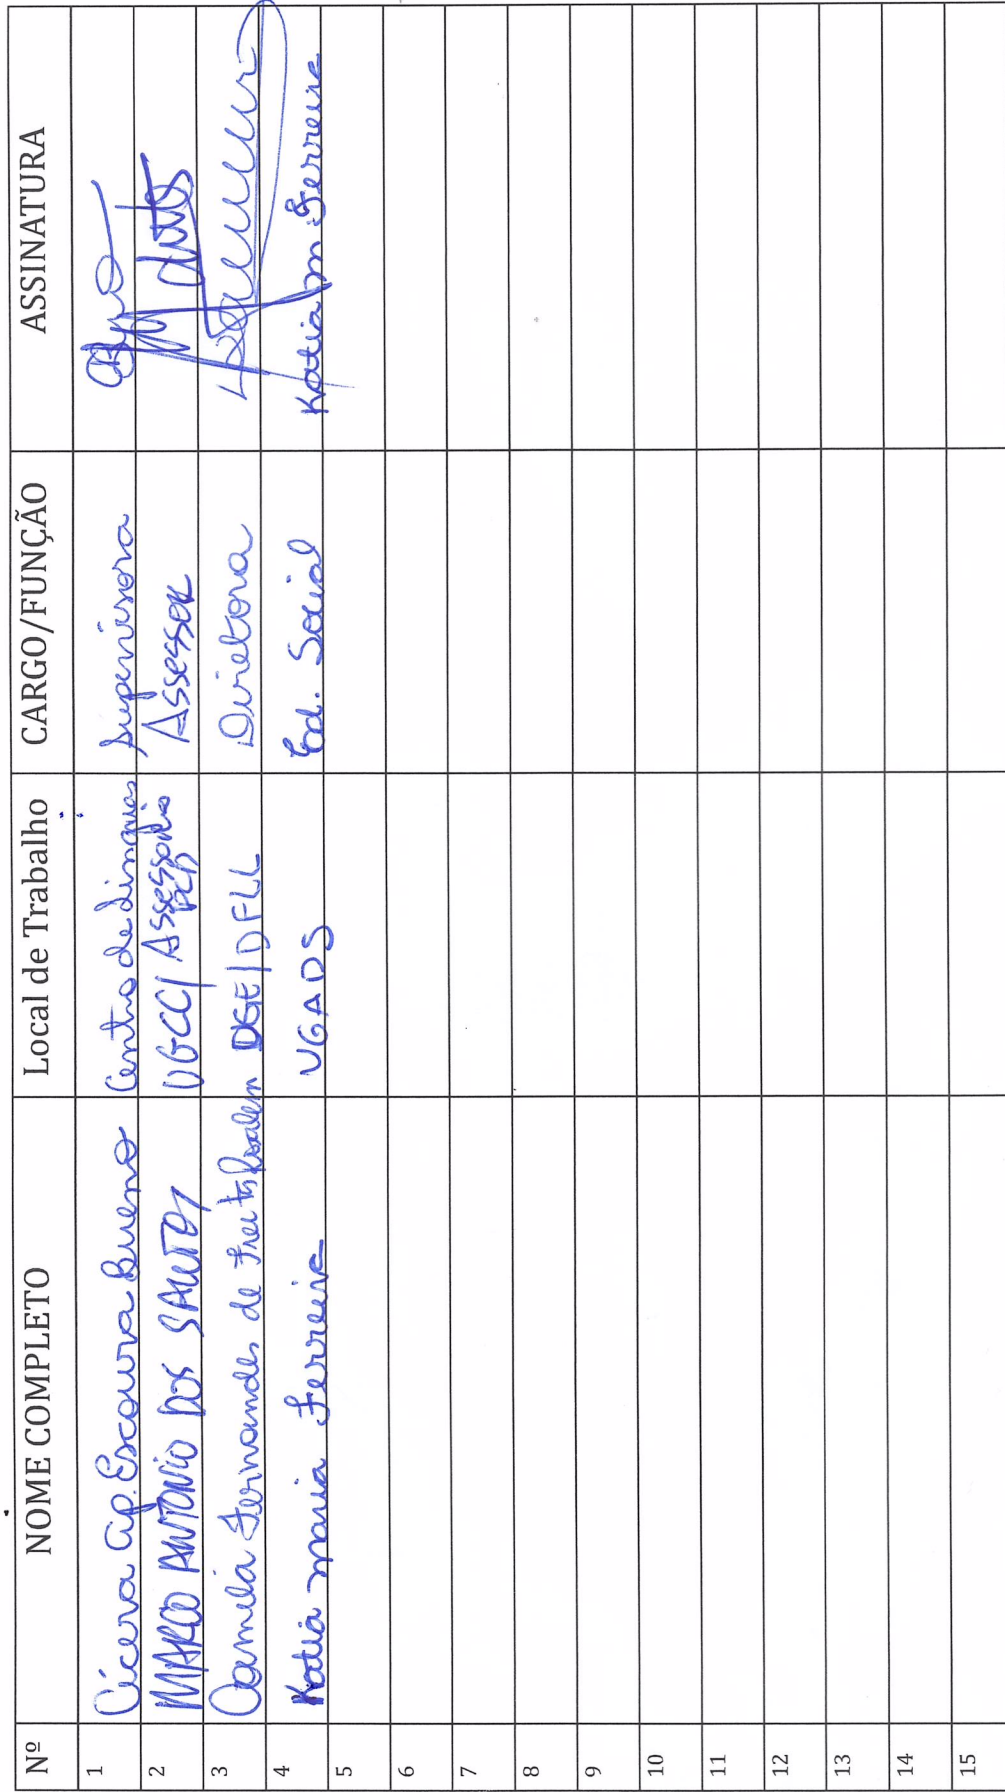 Nº NOME COMPLETO Local de Trabalho CARGO/FUNÇÃO ASSINATURA
1 Cícera Ap. Escoura Bueno Centro de Línguas Supervisora
2 MARCO ANTONIO DOS SANTOS UGCC/ Assessoria PCD Assessor
3 Camila Fernandes de DGE/DFLL Diretora
4 Katia Maria Ferreira UGADS Ed. Social Katia M Ferreira
5
6
7
8
9
10
11
12
13
14
15